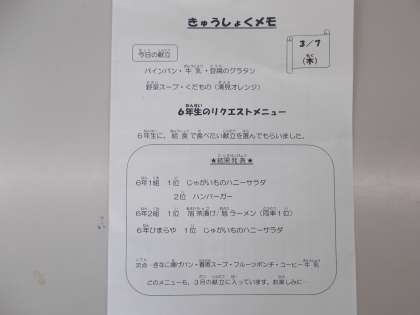 きゅうしょくメモ
3/7
(木)
今日の献立
パインパン・牛乳・豆腐のグラタン
野菜スープ・くだもの(清見オレンジ)
6年生のリクエストメニュー
6年生に、給食で食べたい献立を選んでもらいました。
★結果発表★
6年1組 1位 じゃがいものハニーサラダ
2位 ハンバーガー
6年2組 1位 鮭茶漬け/塩ラーメン(同率1位)
6年ひまらや 1位 じゃがいものハニーサラダ
次点…きなこ揚げパン・春雨スープ・フルーツポンチ・コーヒー牛乳
どのメニューも、3月の献立に入っています。お楽しみに…